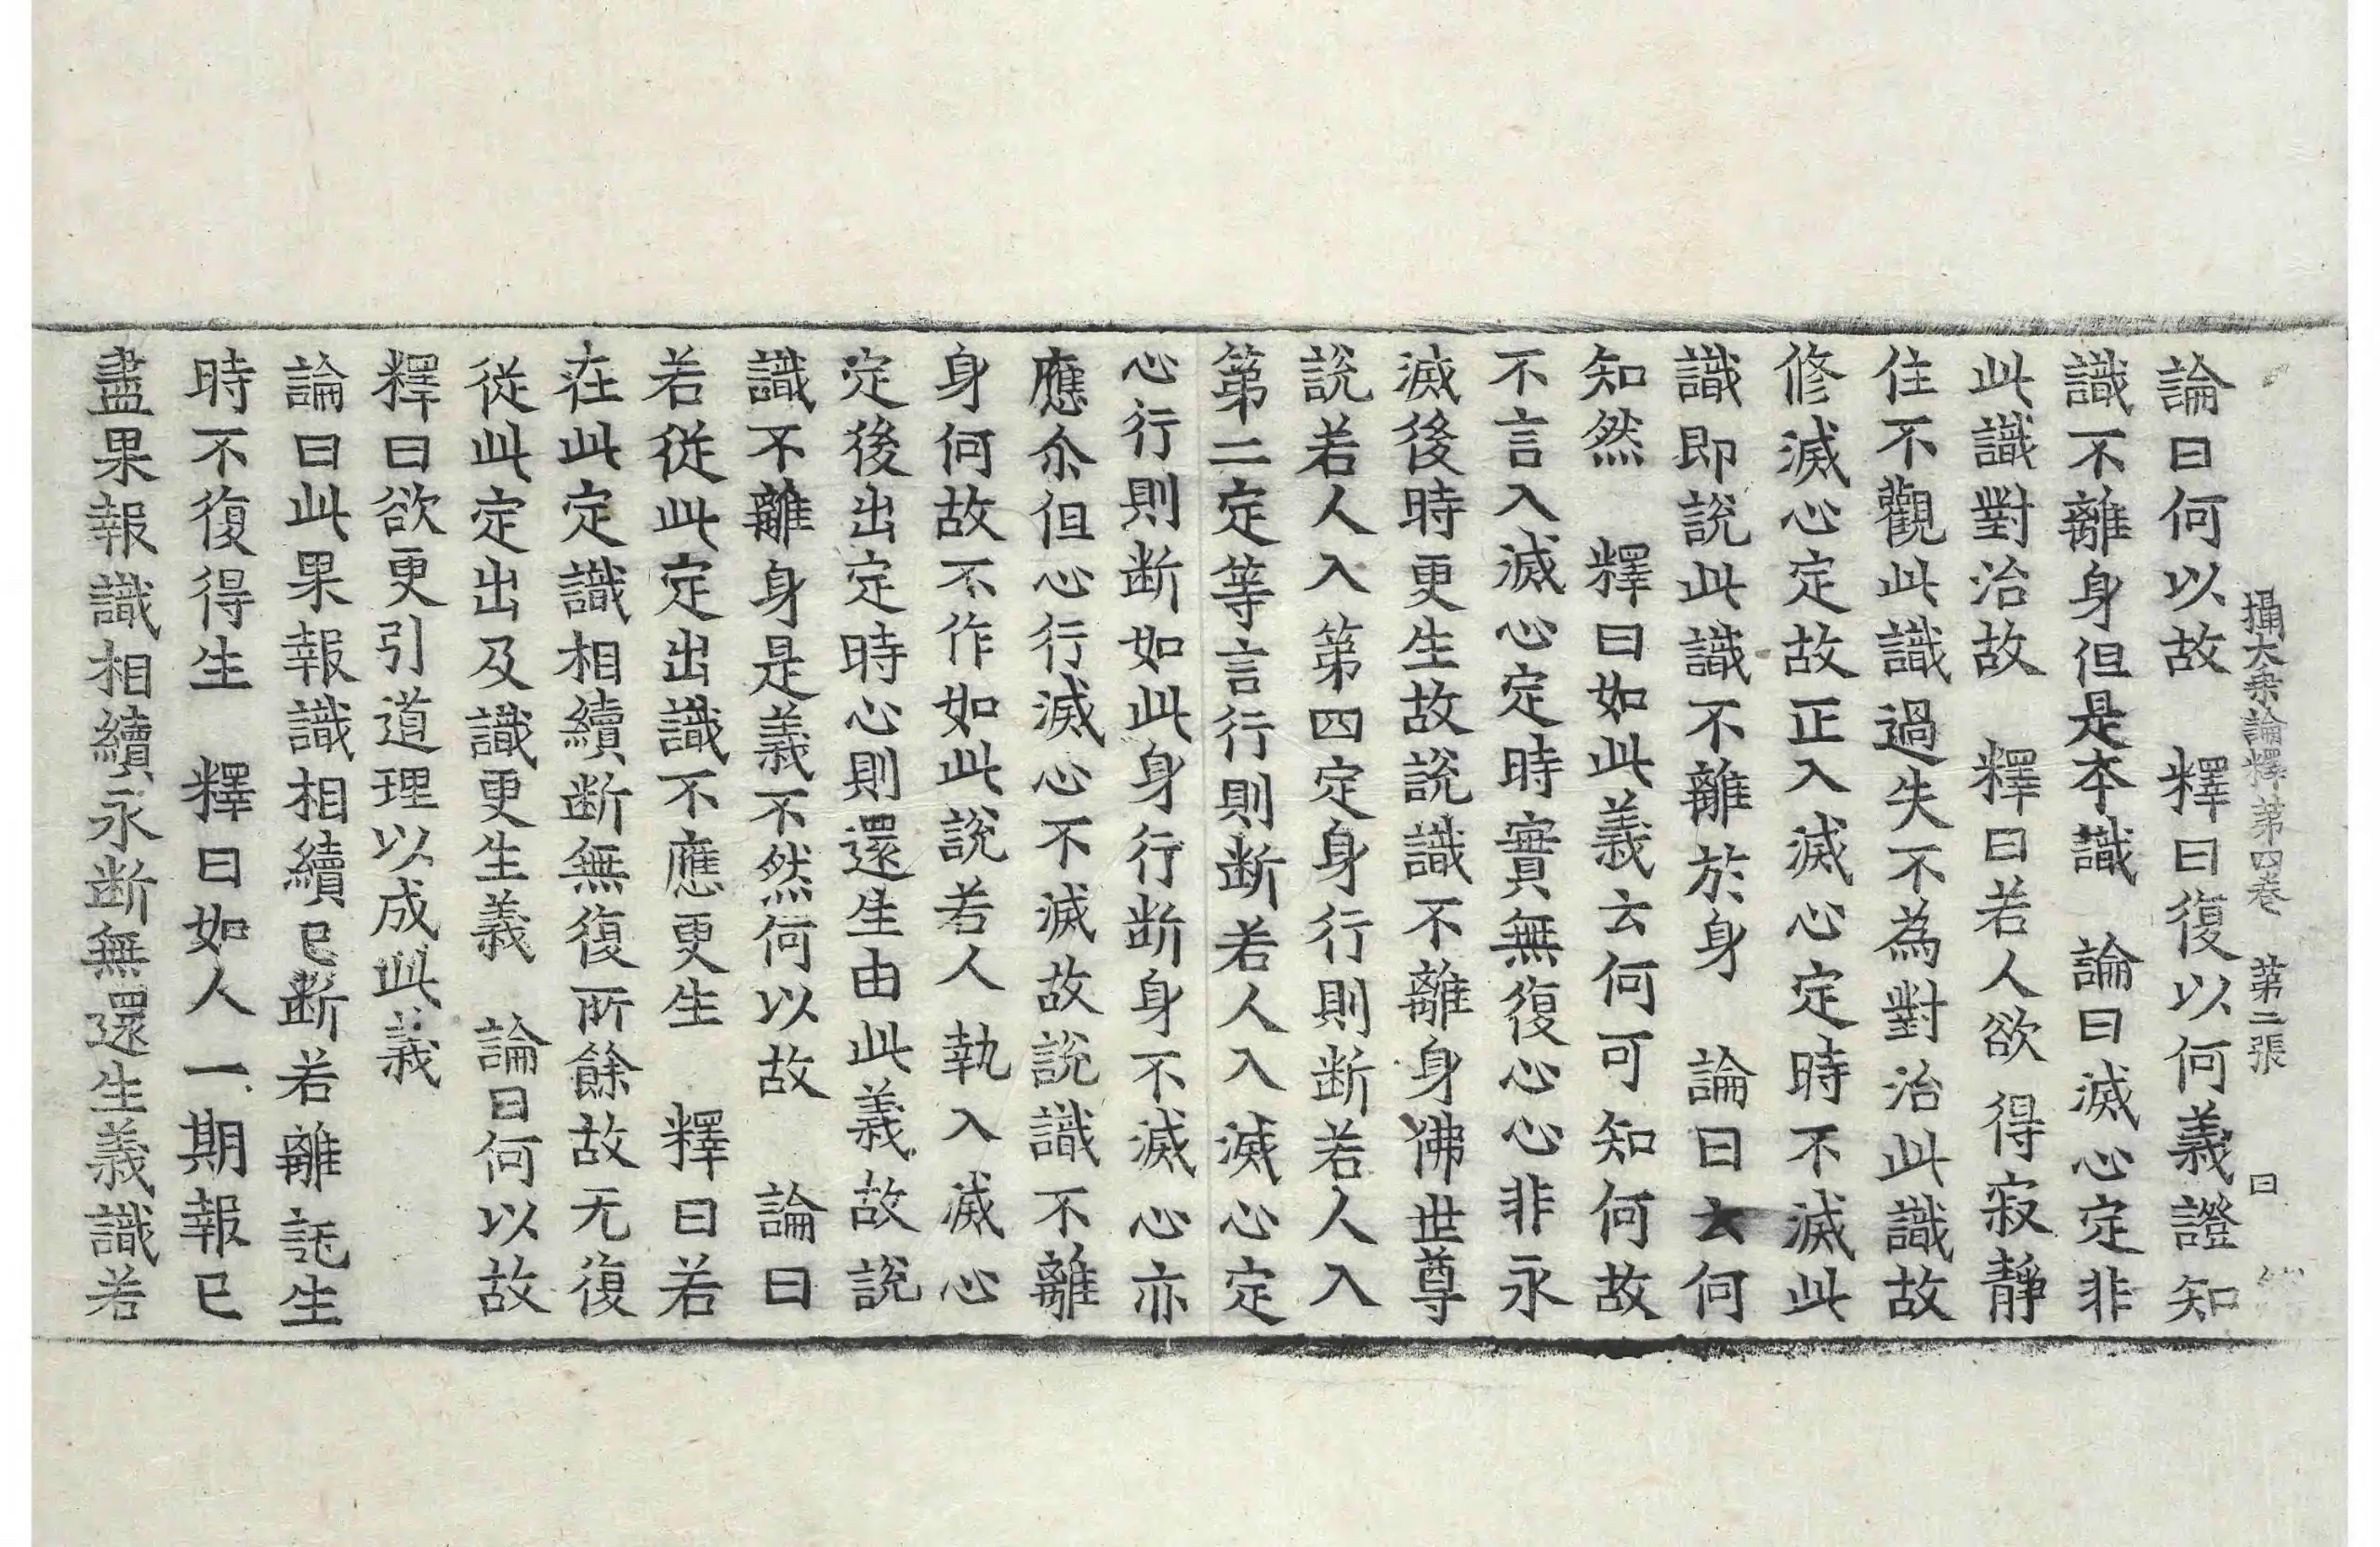 攝大乗論釋第四卷　第二張　曰
論曰何以故　釋曰復以何義證知
識不離身但是本識　論曰滅心定非
此識對治故　釋曰若人欲得寂静
住不觀此識過失不為對治此識故
修滅心定故正入滅心定時不滅此
識即説此識不離於身　論曰云何
知然　釋曰如此義云何可知何故
不言入滅心定時實無復心心非永
滅後時更生故説識不離身佛世尊
説若人入第四定身行則断若人入
第二定等言行則断若人入滅心定
心行則断如此身行断身不滅心亦
應尒但心行滅心不滅故説識不離
身何故不作如此説若人執入滅心
定後出定時心則還生由此義故説
識不離身是義不然何以故　論曰
若從此定出識不應更生　釋曰若
在此定識相續断無復所餘故无復
從此定出及識更生義　論曰何以故
釋曰欲更引道理以成此義
論曰此果報識相續已断若離託生
時不復得生　釋曰如人一期報已
盡果報識相續永断無還生義識若